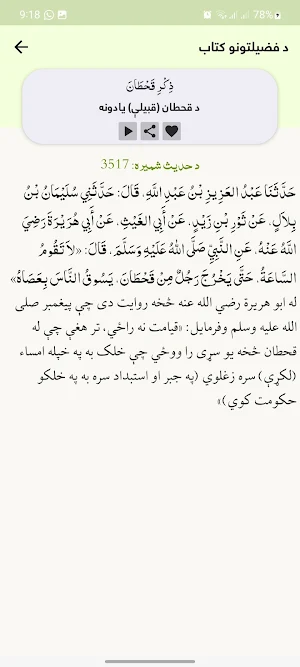 9:18
78%
د فضیلتونو کتاب
ذِكْرِ قَحْطَانَ
د قحطان (قبیلې) یادونه
د حدیث شمېره: 3517
حَدَّثَنَا عَبْدُ العَزِيزِ بْنُ عَبْدِ اللَّهِ، قَالَ: حَدَّثَنِي سُلَيْمَانُ بْنُ
بِلاَلٍ، عَنْ ثَوْرِ بْنِ زَيْدٍ، عَنْ أَبِي الغَيْثِ، عَنْ أَبِي هُرَيْرَةَ رَضِيَ
اللَّهُ عَنْهُ، عَنِ النَّبِيِّ صَلَّى اللهُ عَلَيْهِ وَسَلَّمَ، قَالَ: «لاَ تَقُومُ
السَّاعَةُ، حَتَّى يَخْرُجَ رَجُلٌ مِنْ قَحْطَانَ، يَسُوقُ النَّاسَ بِعَصَاهُ»
له ابو هریرة رضي الله عنه څخه روایت دی چې پیغمبر صلی
الله علیه وسلم وفرمایل: «قیامت نه راځي، تر هغې چې له
قحطان څخه یو سړی را ووځي چې خلک به په خپله امساء
(لکړې) سره زغلوي (په جبر او استبداد سره به په خلکو
حکومت کوي)»